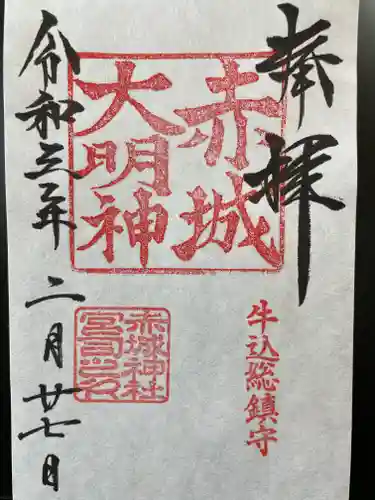 奉拝
赤城
大明神
牛込総鎮守
赤城神社
宮司之印
令和三年 二月廿七日